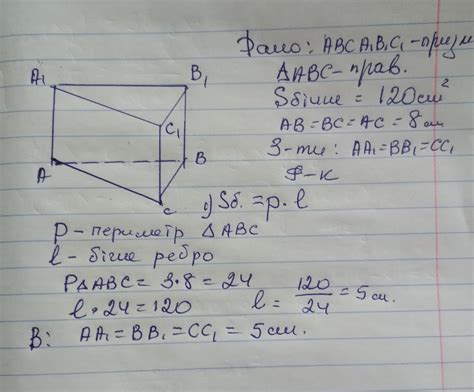 Дано: ABCA₁B₁C₁ - призм
ΔABC - прав.
Sбічне = 120см²
AB = BC = AC = 8см
З-ти: AA₁ = BB₁ = CC₁
A₁
B₁
C₁
A
B
C
Sб. = p · l
P - периметр ΔABC
l - бічне ребро
PΔABC = 3·8 = 24
l · 24 = 120 l = 120/24 = 5см.
В: AA₁ = BB₁ = CC₁ = 5см.